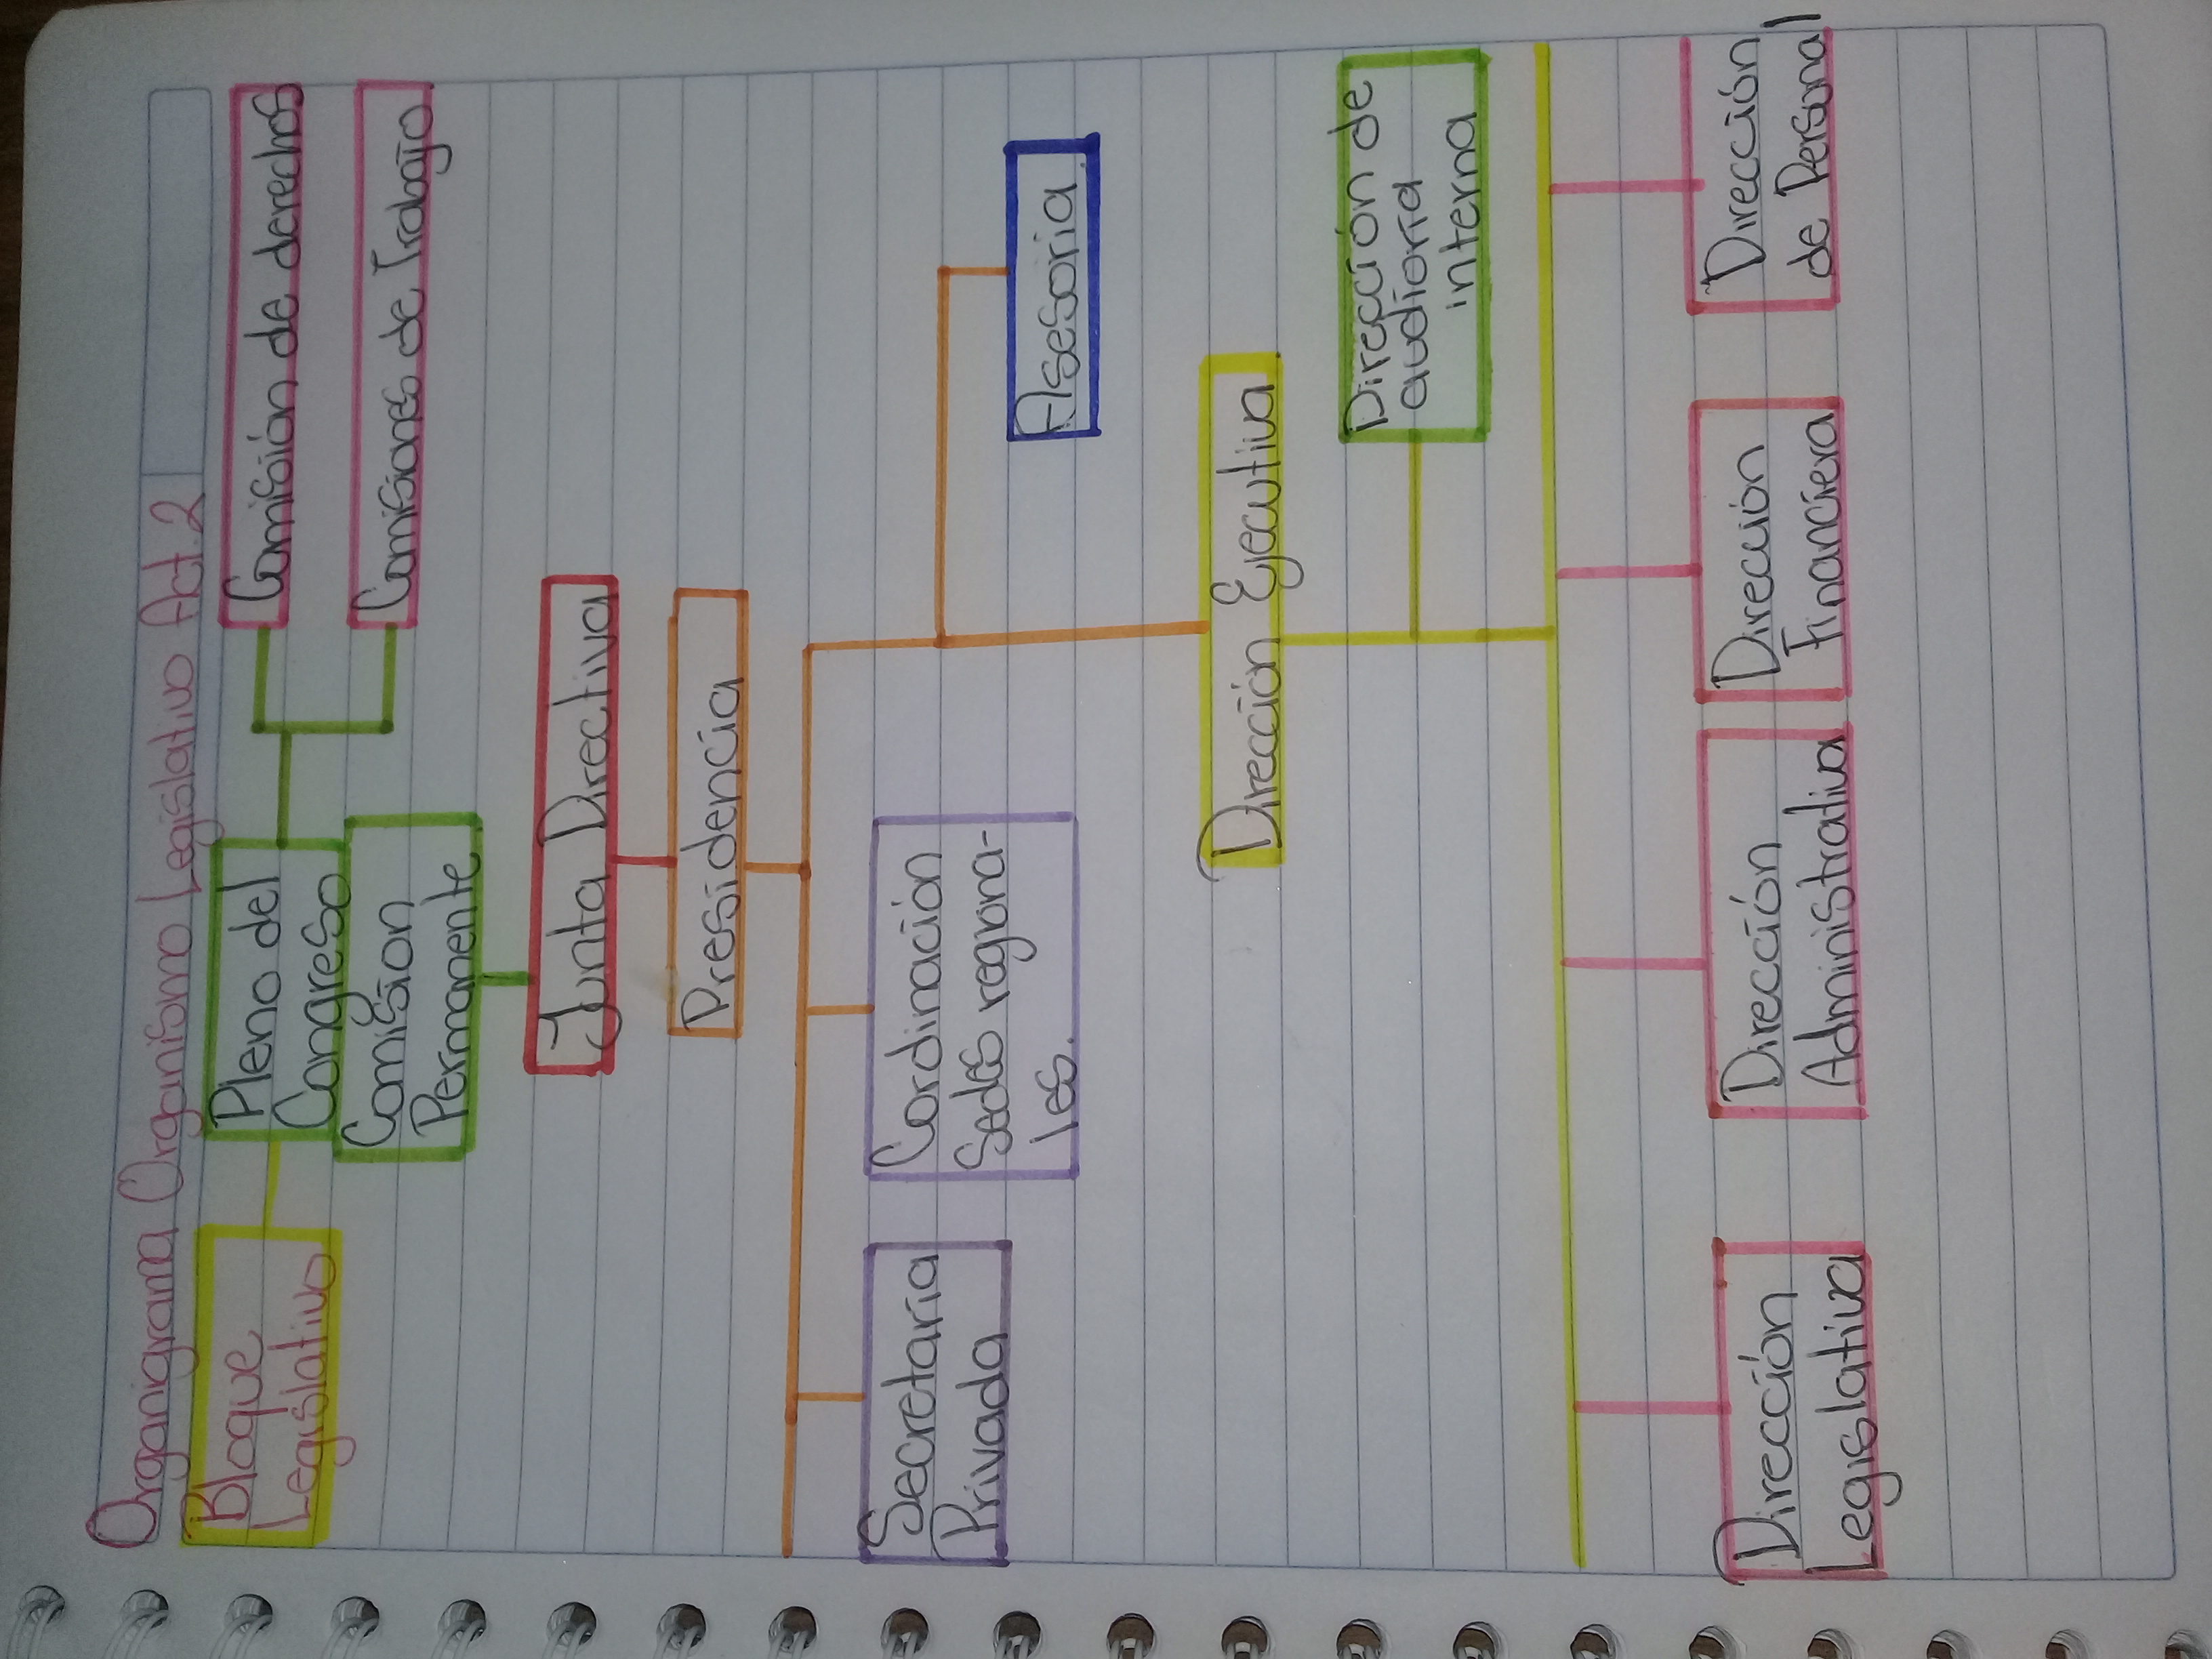 Organigrama Organismo Legislativo Act.2
Bloque
Legislativo
Pleno del
Congreso
Comisión
Permanente
Comisión de derechos
Comisiones de Trabajo
Junta Directiva
Presidencia
Secretaria
Privada
Cordinación
Sedes regiona-
les.
Asesoria
Dirección Ejecutiva
Dirección de
audioria
interna
Dirección
Legislativa
Dirección
Administrativa
Dirección
Financiera
Dirección
de Personal